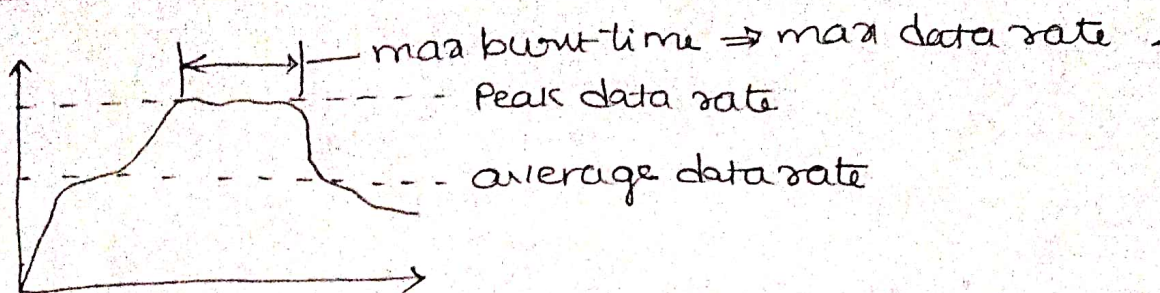 max burst time ⇒ max data rate.
Peak data rate
average data rate